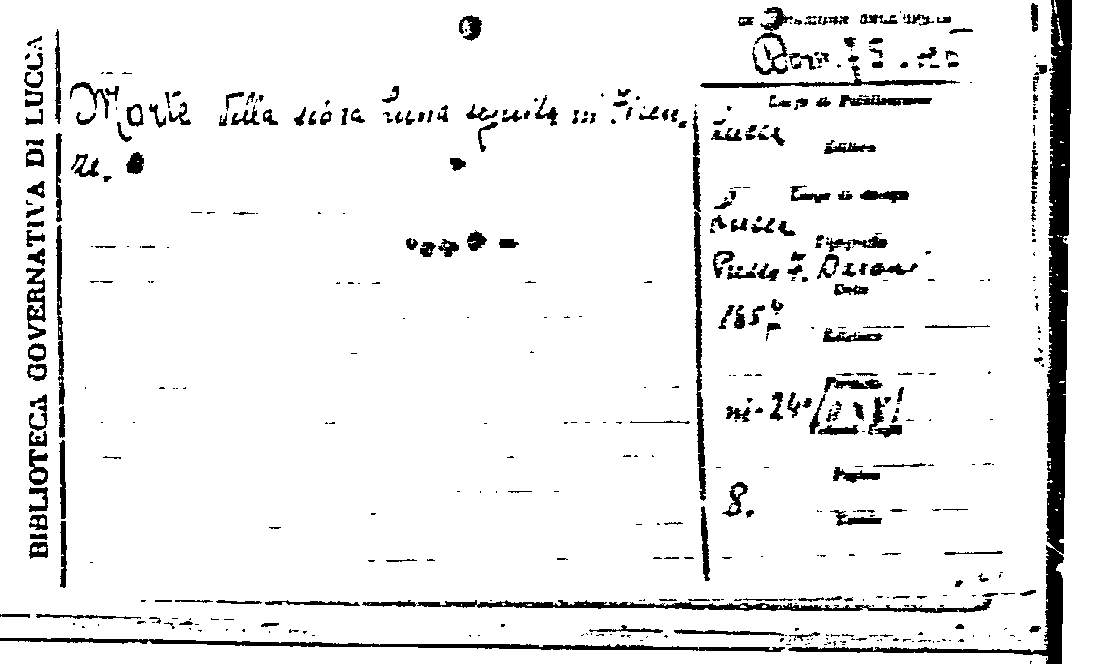 BIBLIOTECA GOVERNATIVA DI LUCCA
Morte della siora Luna seguita in Firen-
ze.
Luogo di Pubblicazione
Lucca
Editore
Luogo di stampa
Lucca
Tipografo
Presso F. Baroni
Data
185
Edizione
Formato
in-24°
Pagine
8.